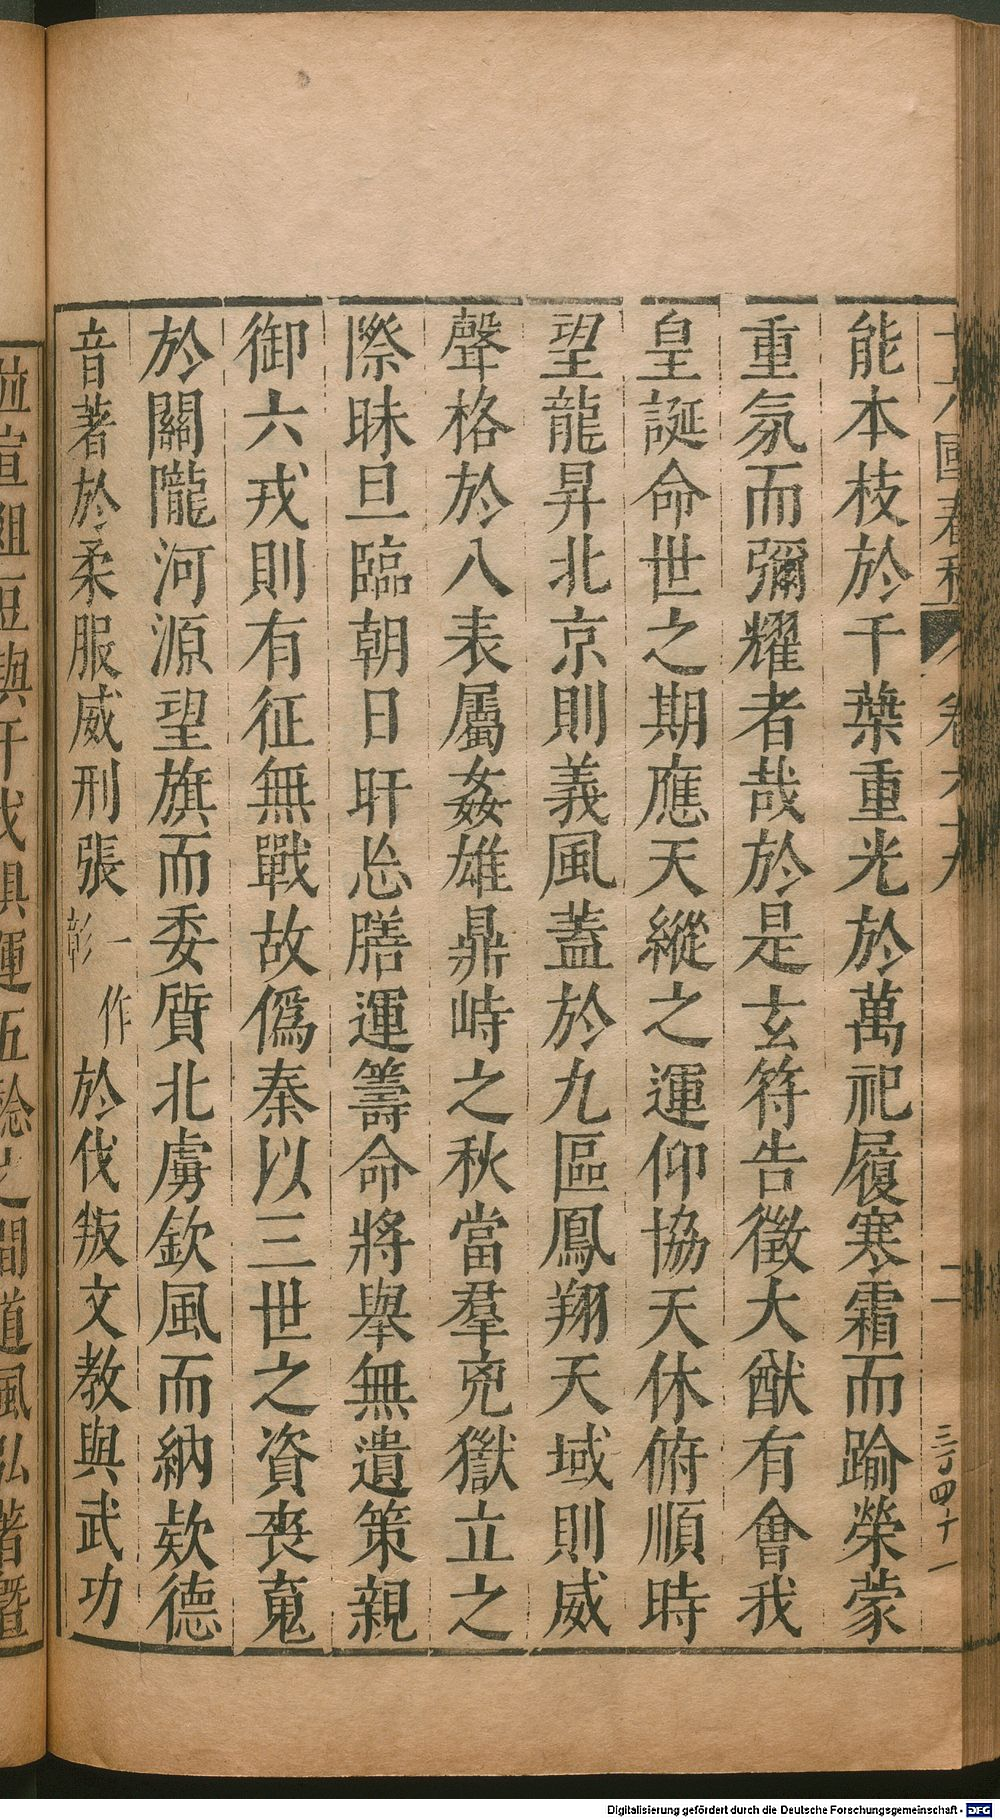 十六國春秋 卷六十九 二
能本枝於千葉重光於萬祀履寒霜而踰榮蒙
重氛而彌耀者哉於是玄符告徵大猷有會我
皇誕命世之期應天縱之運仰協天休俯順時
望龍昇北京則義風蓋於九區鳳翔天域則威
聲格於八表屬姦雄鼎峙之秋當羣兇嶽立之
際昧旦臨朝日旰忘膳運籌命將舉無遺策親
御六戎則有征無戰故僞秦以三世之資喪䰟
於關隴河源望旗而委質北虜欽風而納欵德
音著於柔服威刑張一作彰於伐叛文教與武功
竝宣俎豆與干戈俱運五稔之間道風弘著曁
Digitalisierung gefördert durch die Deutsche Forschungsgemeinschaft - DFG